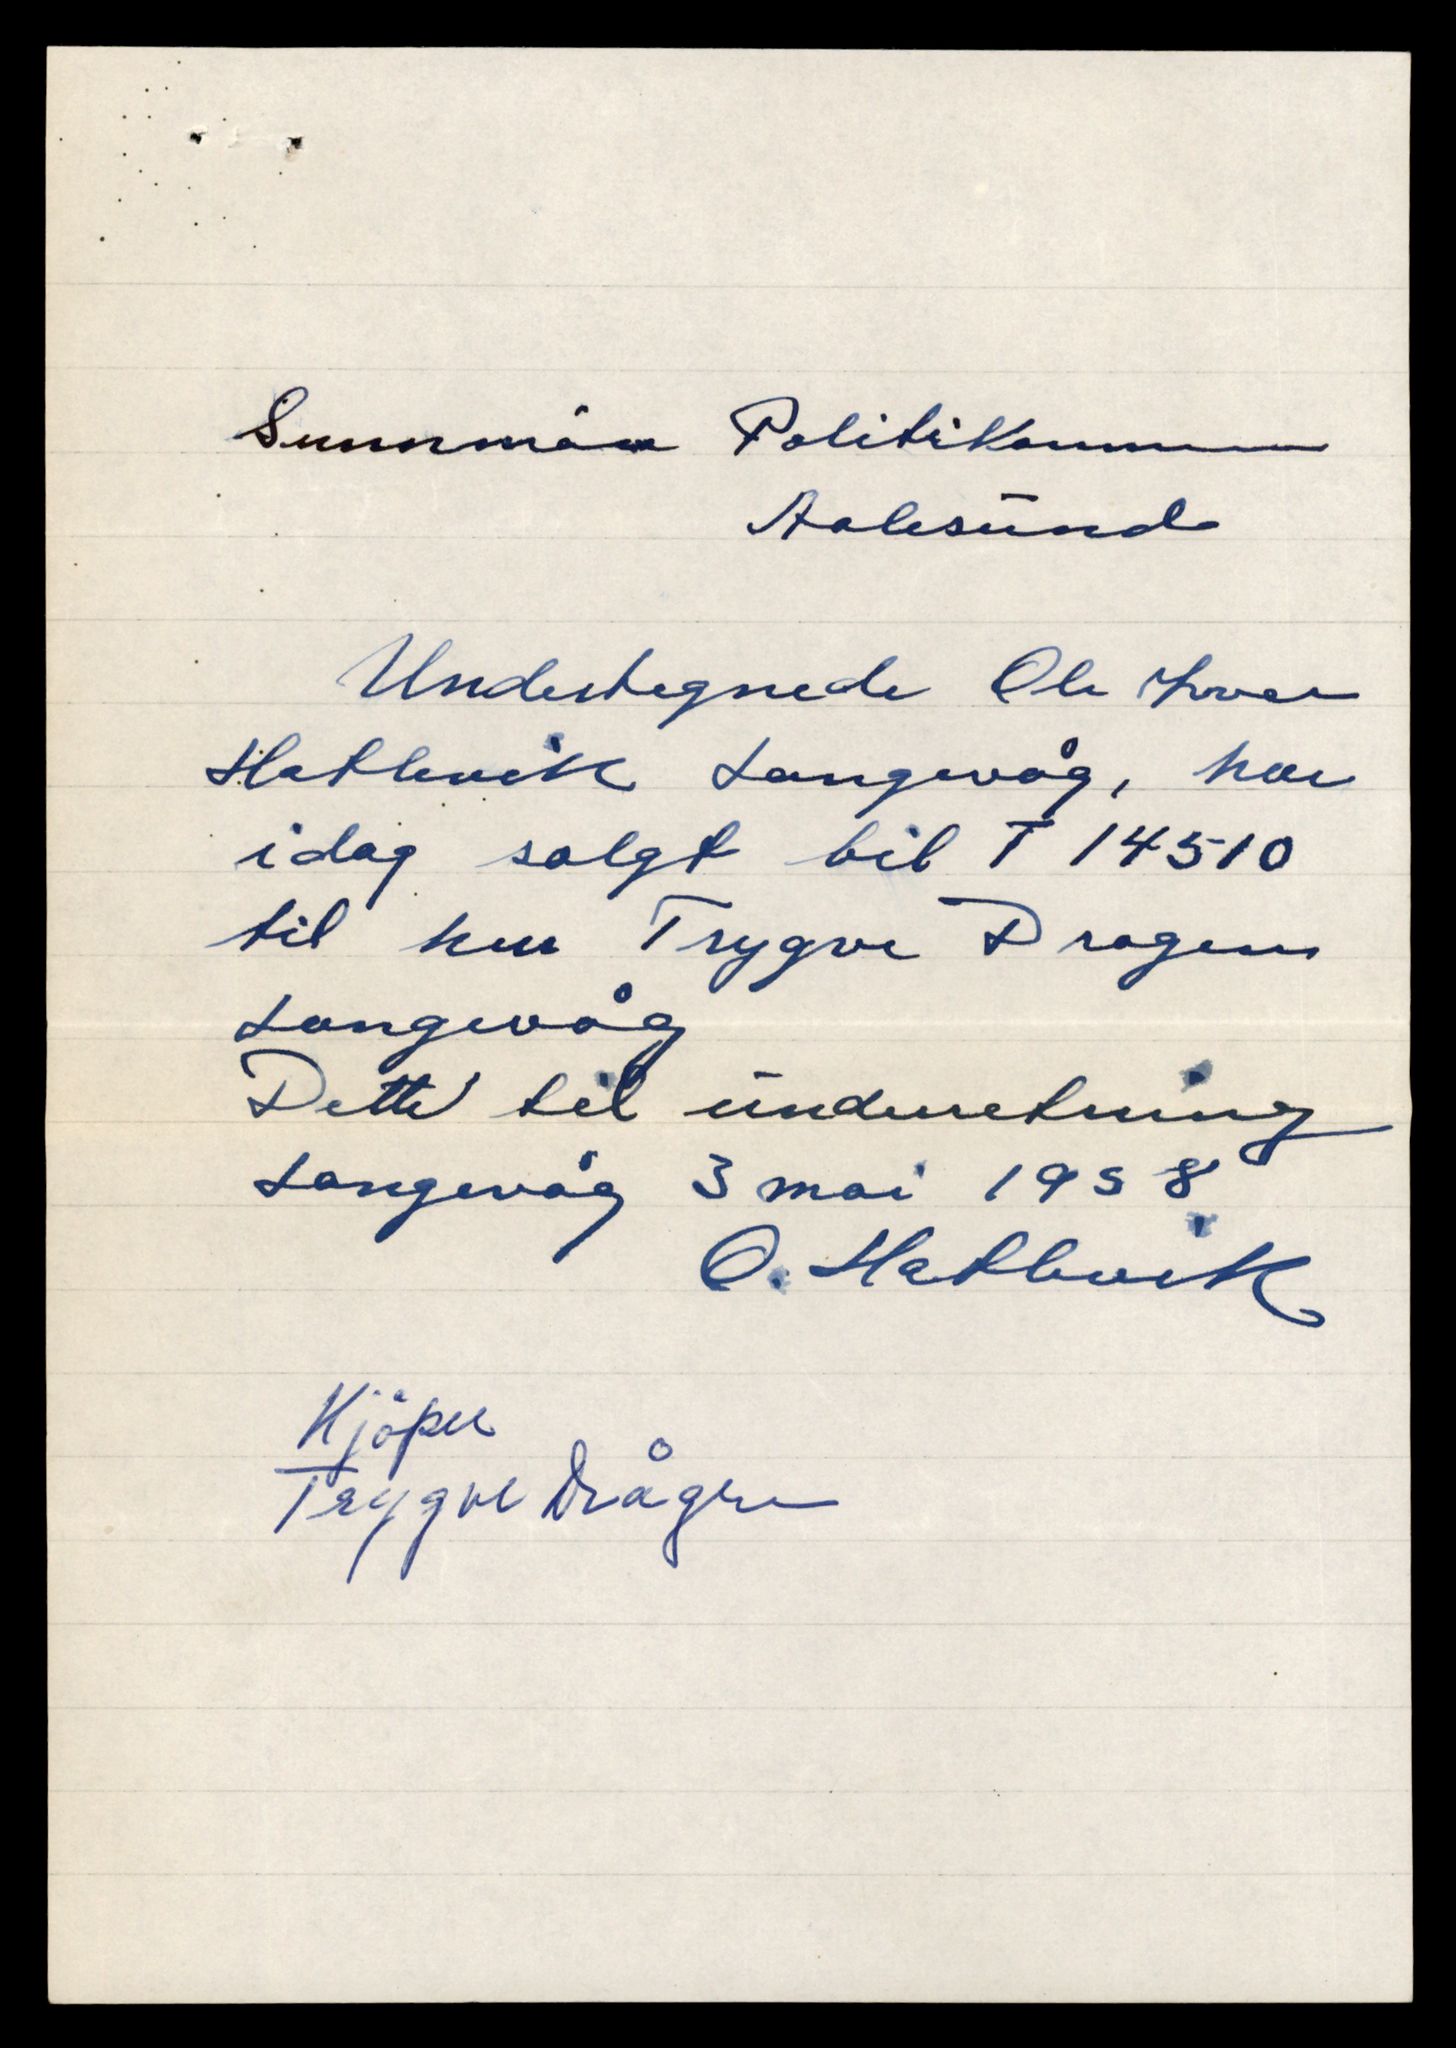 Sunnmöre Politikammer
Aalesund
Undertegnede Ole Iver
Hatlevik Langevåg, har
idag solgt bil T 14510
til herr Trygve Dragen
Langevåg
Dette til underretning
Langevåg 3 mai 1958
O. Hatlevik
Kjöper
Trygve Drågen